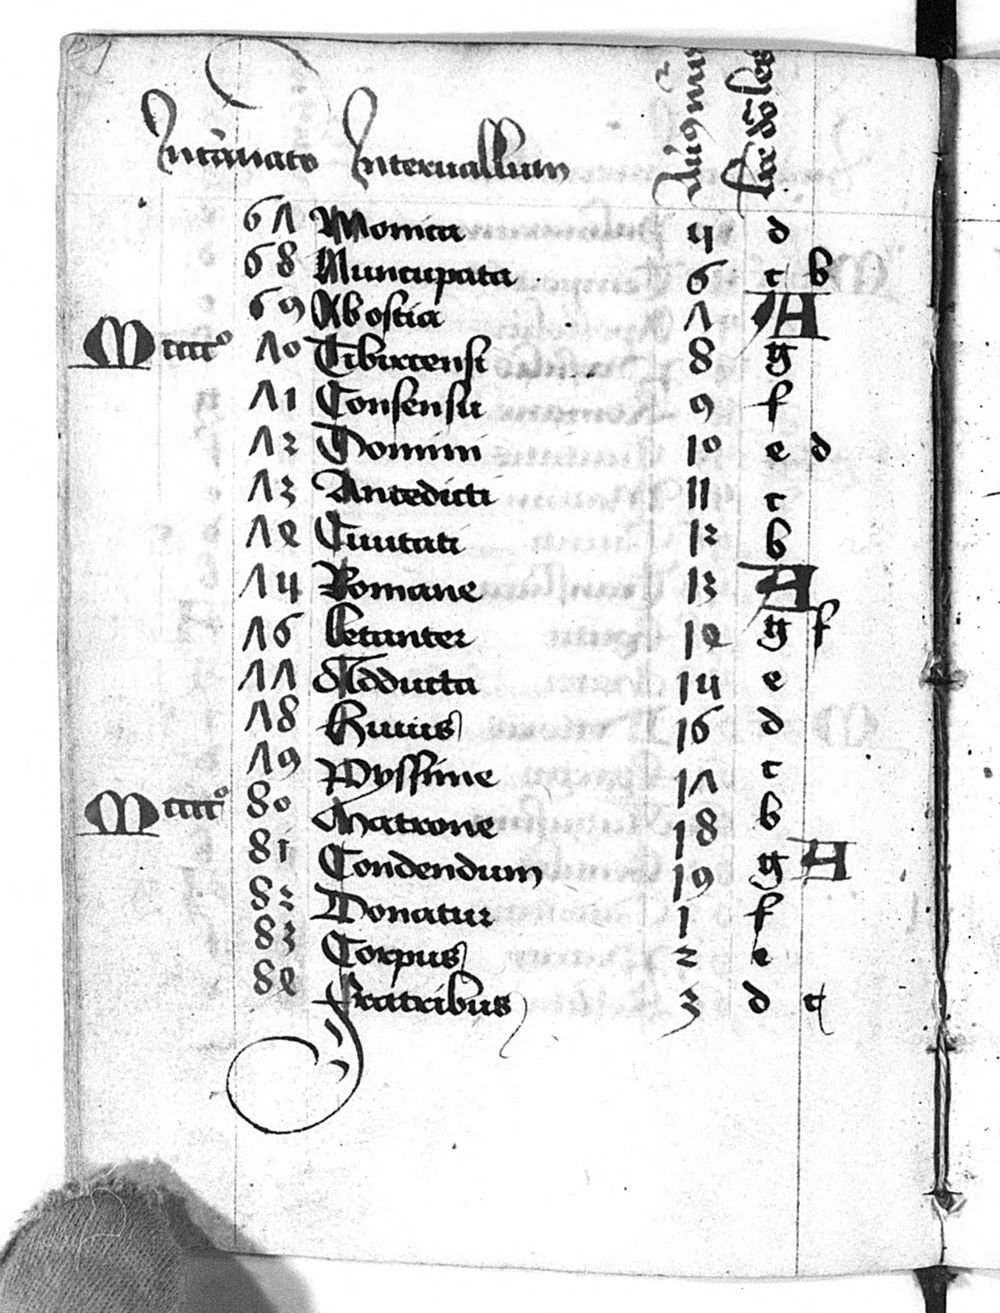 Incarnatio Interuallum Aur9 nu9 lr̄e d̄o les
67 Monica 5 d
68 Nuncupata 6 c b
69 Ab ostia 7 A
Mcccc° 70 Tibirtensi 8 g
71 Consensu 9 f
72 Domini 10 e d
73 Antedicti 11 c
74 Ciuitati 12 b
75 Romane 13 A
76 Letanter 14 g f
77 Adducta 15 e
78 Huius 16 d
79 Pyssime 17 c
Mcccc° 80 Matrone 18 b
81 Condendum 19 g A
82 Donatur 1 f
83 Corpus 2 e
84 Fratribus 3 d c